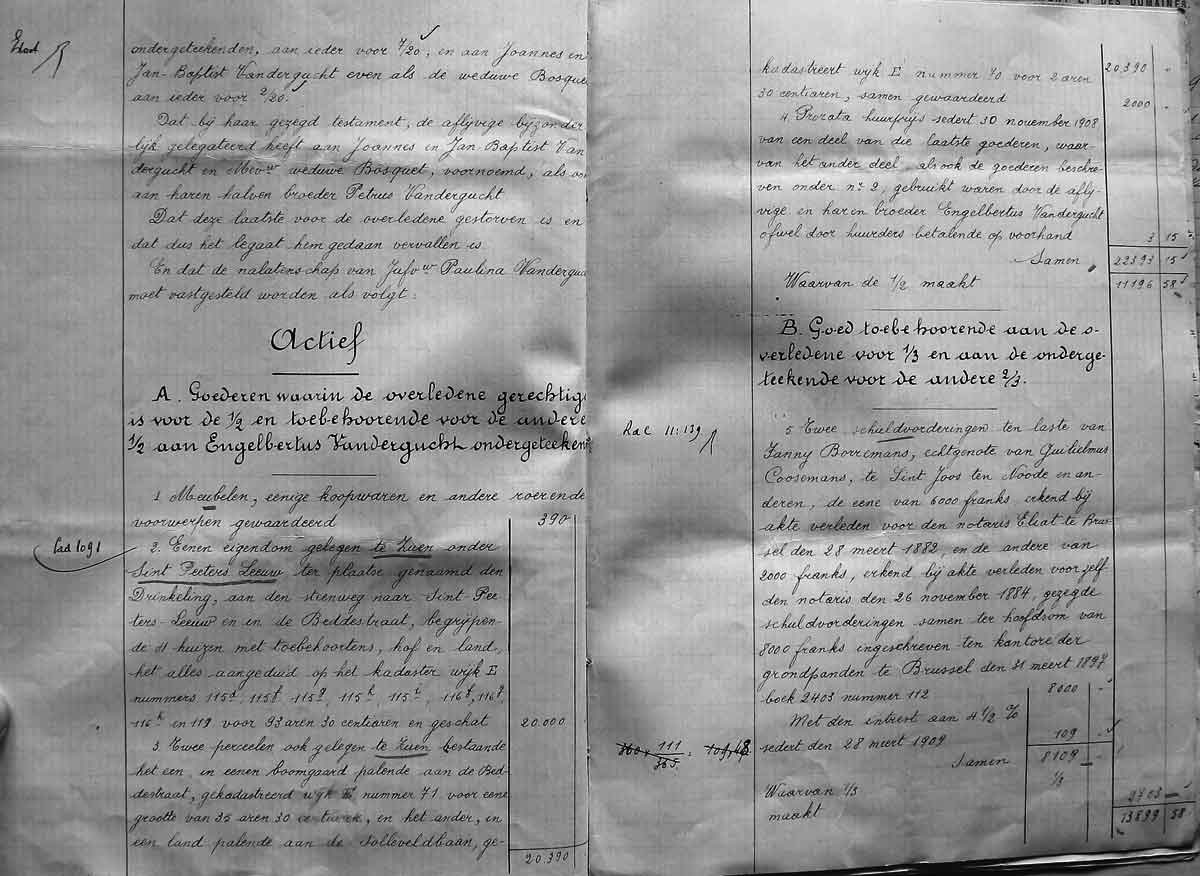 ondergeteekenden, aan ieder voor 7/20, en aan Joannes en
Jan-Baptist Vandergucht even als de weduwe Bosque
aan ieder voor 2/20.
Dat bij haar gezegd testament, de aflijvige bijzonder
lijk gelegateerd heeft aan Joannes en Jan Baptist Van
dergucht en Mevwe weduwe Bosquet, voornoemd, als oo
aan haren halven broeder Petrus Vandergucht
Dat deze laatste voor de overledene gestorven is en
dat dus het legaat hem gedaan vervallen is
En dat de nalatenschap van Jufvw Paulina Vandergu
moet vastgesteld worden als volgt:
Actief
A. Goederen waarin de overledene gerechtig
is voor de 1/2 en toebehoorende voor de andere
1/2 aan Engelbertus Vandergucht ondergeteeken
1 Meubelen, eenige koopwaren en andere roerende
voorwerpen gewaardeerd 390
Cad 1091
2. Eenen eigendom gelegen te Zuen onder
Sint Peeters Leeuw ter plaatse genaamd den
Drinkeling, aan den steenweg naar Sint-Pee
ters-Leeuw en in de Beddestraat, begrijpen-
de 4 huizen met toebehoortens, hof en land,
het alles aangeduid op het kadaster wijk E
nummers 115d, 115f, 115g, 115h, 115i, 116f, 116g,
116h en 119 voor 93 aren 30 centiaren en geschat 20.000
3. Twee perceelen ook gelegen te Zuen bestaande
het een in eenen boomgaard palende aan de Bed-
destraat, gekadastreerd wijk E nummer 71 voor eene
grootte van 35 aren 30 centiaren, en het ander, in
een land palende aan de Solleveldbaan, ge-
20.390
ET DES DOMAINES.
20390
kadastreert wijk E nummer 70 voor 2 aren
30 centiaren, samen gewaardeerd 2000 "
4. Prorata huurprijs sedert 30 november 1908
van een deel van die laatste goederen, waar-
van het ander deel, alsook de goederen beschre-
ven onder no 2, gebruikt waren door de aflij-
vige en haren broeder Engelbertus Vandergucht
ofwel door huurders betalende op voorhand 3 15
Samen 22393 15
Waarvan de 1/2 maakt 11196 58
B. Goed toebehoorende aan de o-
verledene voor 1/3 en aan de onderge-
teekende voor de andere 2/3.
Rac 11:139
5 Twee schuldvorderingen ten laste van
Fanny Borremans, echtgenote van Guilielmus
Coosemans, te Sint Joos ten Noode en an-
deren, de eene van 6000 franks, erkend bij
akte verleden voor den notaris Eliat te Brus-
sel den 28 meert 1882, en de andere van
2000 franks, erkend bij akte verleden voor zelf
den notaris den 26 november 1884, gezegde
schuldvorderingen samen ter hoofdsom van
8000 franks ingeschreven ten kantore der
grondpanden te Brussel den 31 meert 1897
boek 2403 nummer 112 8000 "
Met den intrest aan 4 1/2 %
sedert den 28 meert 1909 109 "
360 x 111/365 = 109,48
Samen 8109 "
1/3
Waarvan 1/3
maakt 2703 "
13899 58